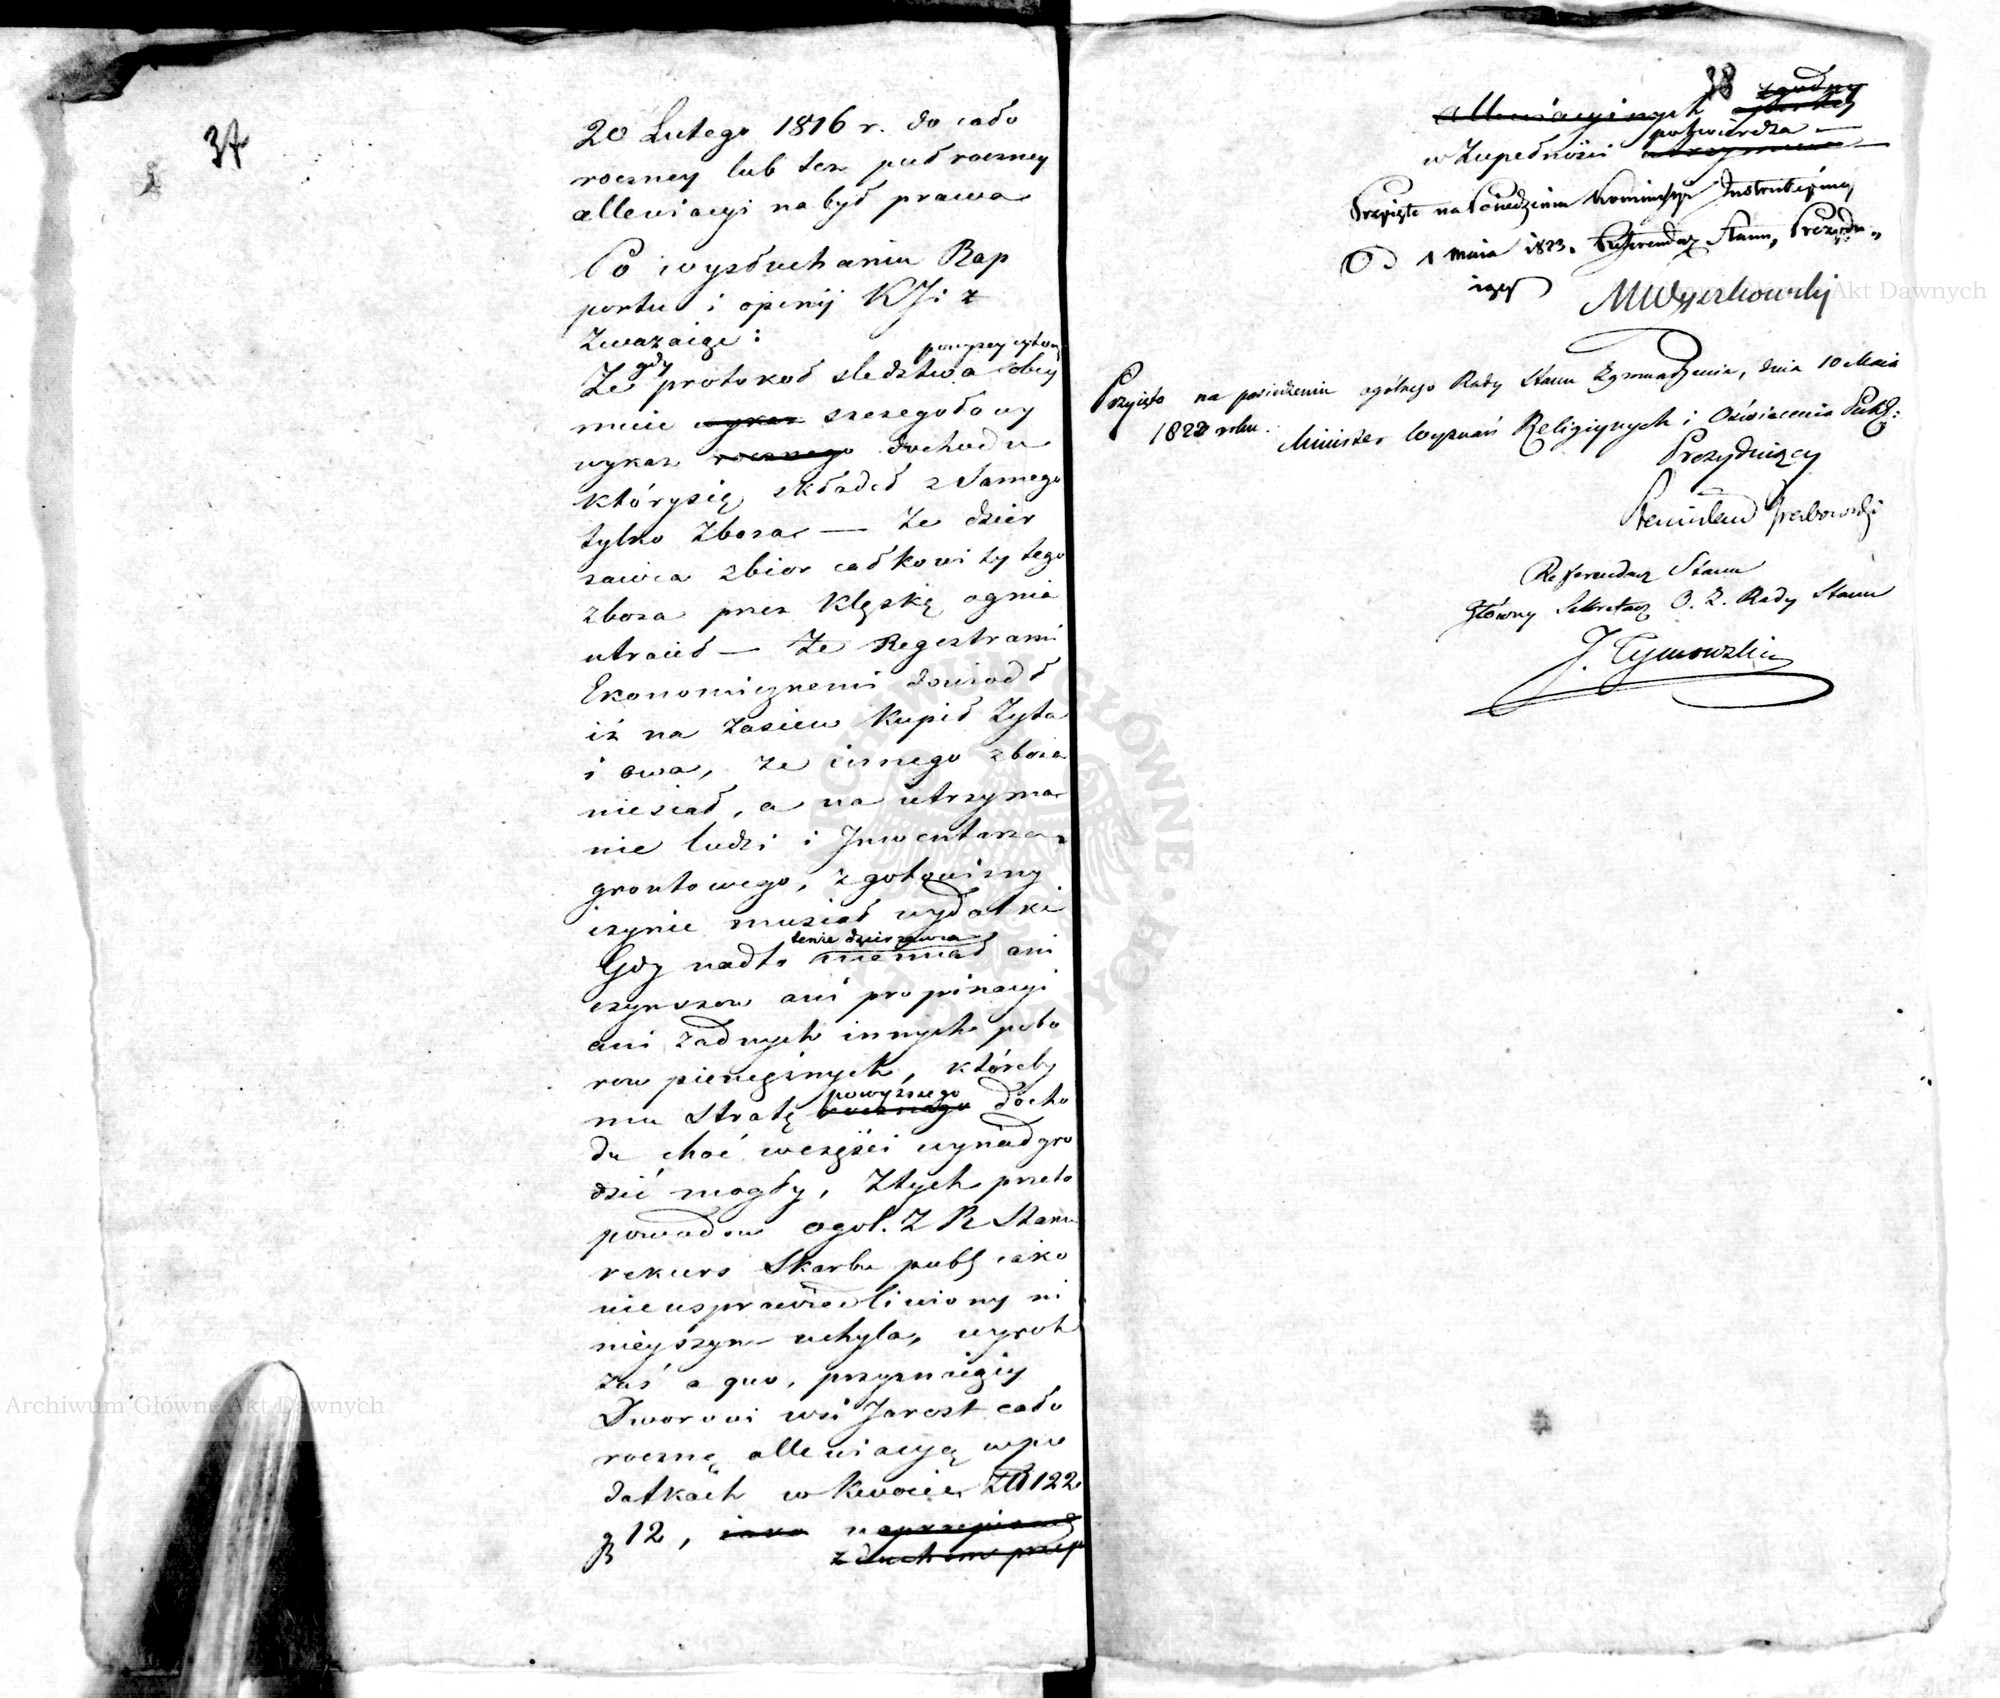 37
20 Lutego 1816 r. do cało
roczney lub też puł roczney
allewiacyi nabył prawa
Po wysłuchaniu Rap
portu i opinij KJi z
Zważaiąc:
powyżey cytow
gdy
Że protokoł sledztwa obey
muie wykaz szczegołowy
wykaz rocznego dochodu
który się składał z samego
tylko Zboża — Że dzier
żawca zbior całkowity tego
zboża przez Klęskę ognia
utracił — Że Regestrami
Ekonomicznemi dowiodł
iż na zasiew Kupił Żyta
i owsa, że innego zboża
niesiał, a na utrzyma
nie ludzi i Inwentarza
grontowego, z gotowizny
czynić musiał wydatki
tenże dzierżawca
Gdy nadto niemiał ani
czynszow ani propinacyi
ani żadnych innych pobo
row pieniężnych, któreby
powyższego
mu Stratę rocznego docho
du choć wczęści wynadgro
dzić mogły, Ztych przeto
powodow ogol. Z R Stanu
rekurs Skarbu publ iako
nieusprawiedliwiony ni
nieyszym uchyla, wyrok
zaś a quo, przyznaiący
Dworowi wsi Jarost cało
roczną allewiacyą wpo
datkach w Kwocie Zł 122
gr 12, iako naprzepisach
z duchem przep
38
zgodny
allewiacyinych
potwierdza —
w Zupełności utrzymuie
Przyięte na Posiedzeniu Kommissyi Instrukcyiney
D. 1 Maia 1823. Referendarz Stanu, Prezydu-
iący
MWyczechowski
Przyięto na posiedzeniu ogólnego Rady Stanu Zgromadzenia, dnia 10 Maia
1822 roku.
Minister Wyznań Religiynych i Oświecenia Publ:
Prezyduiący
Stanisław Grabowski
Referendarz Stanu
Główny Sekretarz O. Z. Rady Stanu
J. Tymowski
Archiwum Główne Akt Dawnych
Archiwum Główne Akt Dawnych
ARCHIWUM GŁÓWNE AKT DAWNYCH